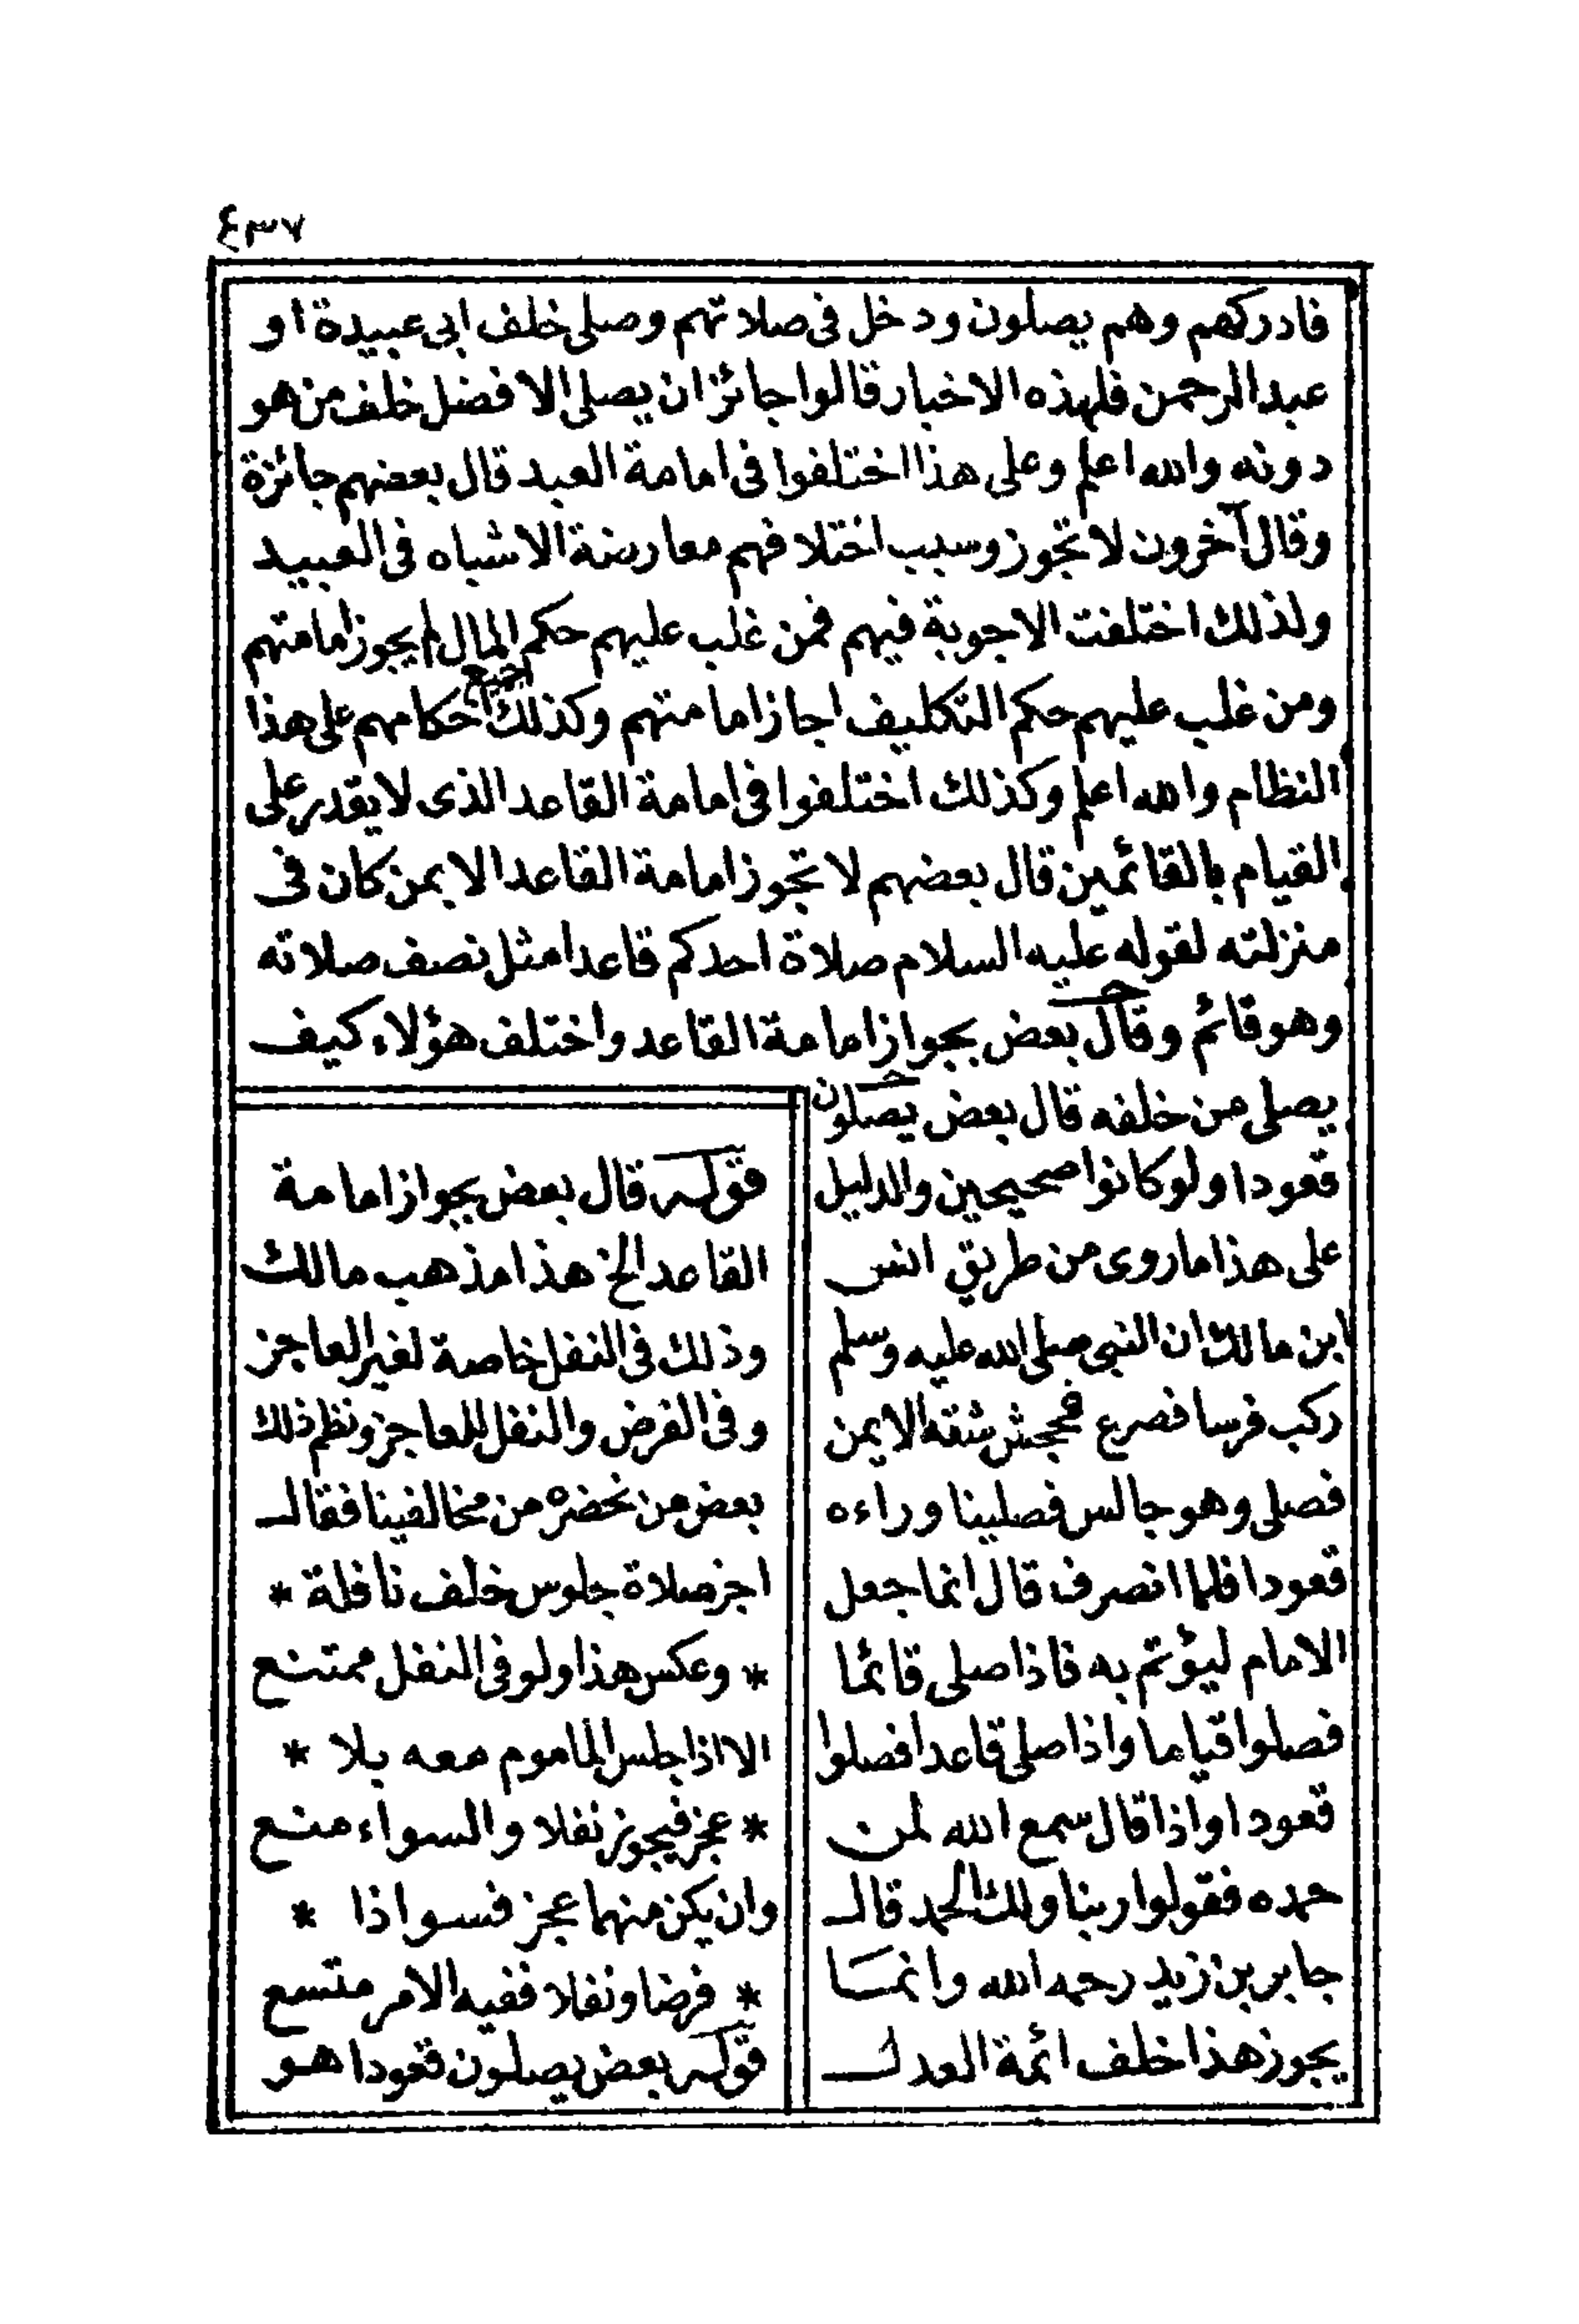 ٤٣٧
فادركهم وهم يصلون ودخل فى صلاتهم وصلى خلف ابى عبيدة او
عبد الرحمن فلهذه الاخبار قالوا جائز ان يصلى الافضل خلف من هو
دونه والله اعلم وعلى هذا اختلفوا فى امامة العبد قال بعضهم جائزة
وقال آخرون لا تجوز وسبب اختلافهم معارضة الاشباه فى العبيد
ولذلك اختلفت الاجوبة فيهم فمن غلب عليهم حكم المال لم يجوز امامتهم
ومن غلب عليهم حكم التكليف اجاز امامتهم وكذلك جميع احكامهم على هذا
النظام والله اعلم وكذلك اختلفوا فى امامة القاعد الذى لا يقدر على
القيام بالقائمين قال بعضهم لا تجوز امامة القاعد الا بمن كان فى
منزلته لقوله عليه السلام صلاة احدكم قاعدا مثل نصف صلاته
وهو قائم وقال بعض بجواز امامة القاعد واختلف هؤلاء كيف
يصلى من خلفه قال بعض يصلون
قعودا ولو كانوا صحيحين والدليل
على هذا ما روى من طريق انس
ابن مالك ان النبى صلى الله عليه وسلم
ركب فرسا فصرع فجحش شقه الايمن
فصلى وهو جالس فصلينا وراءه
قعودا فلما انصرف قال انما جعل
الامام ليؤتم به فاذا صلى قائما
فصلوا قياما واذا صلى قاعدا فصلوا
قعودا واذا قال سمع الله لمن
حمده فقولوا ربنا ولك الحمد قال
جابر بن زيد رحمه الله وانما
يجوز هذا خلف ائمة العدل
قوله قال بعض بجواز امامة
القاعد الخ هذا مذهب مالك
وذلك فى النفل خاصة لغير العاجز
وفى الفرض والنفل للعاجز ونظم ذلك
بعض من نحضره من مخالفينا فقال
اجز صلاة جلوس خلف نافلة *
* وعكس هذا ولو فى النفل ممتنع
الا اذا جلس المأموم معه بلا *
* عجز فيجوز نفلا والسواء منع
وان يكن منهما عجز فسو اذا *
* فرضا ونفلا ففيه الامر متسع
قوله بعض يصلون قعودا هو